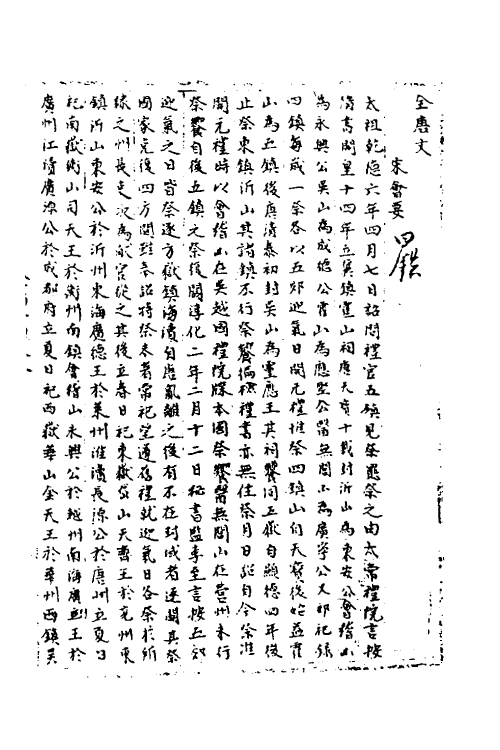 全唐文
宋會要
四鎮
太祖乾德六年四月七日詔問禮官五鎮見祭罷祭之由太常禮院言按
隋高閏皇十四年立冀鎮霍山祠唐天寶十載封沂山為東安公會稽山
為永興公吳山為成德公霍山為應聖公醫無閭山為廣寧公大郊祀錄
四鎮每歲一祭各以五郊迎氣日開元禮惟祭四鎮山自天寶後始益霍
山為五鎮後唐清泰初封吳山為靈應王其祠饗同五嶽自顯德四年後
止祭東鎮沂山其諸鎮不行祭饗徧檢禮書亦無住祭月日詔自今祭準
開元禮時以會稽山在吳越國禮院牒本國祭饗醫無閭山在營州未行
祭饗自後五鎮之祭復闕淳化二年二月十二日秘書監李至言按五郊
迎氣之日皆祭逐方嶽鎮海瀆自唐亂離之後有不在封域者遂闕其祭
國家克復四方間雖奉詔特祭未著常祀望遵舊禮就迎氣日各祭於所
隸之州長吏以次為獻官從之其後立春日祀東嶽岱山天齊王於兗州東
鎮沂山東安公於沂州東海廣德王於萊州淮瀆長源公於唐州立夏日
祀南嶽衡山司天王於衡州南鎮會稽山永興公於越州南海廣利王於
廣州江瀆廣源公於成都府立夏日祀西嶽華山金天王於華州西鎮吳